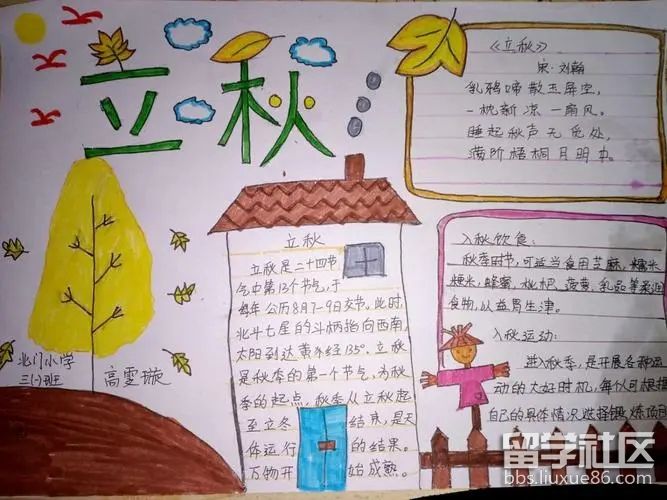 立秋
《立秋》
宋·刘翰
乳鸦啼散玉屏空,
一枕新凉一扇风。
睡起秋声无觅处,
满阶梧桐月明中。
立秋
立秋是二十四节
气中第13个节气,于
每年公历8月7-9日交节。此时
北斗七星的斗柄指向西南,
太阳到达黄经135°。立秋
是秋季的第一个节气,为秋
季的起点,秋季从立秋起
至立冬 结束,是天
体运行 的结果。
万物开 始成熟。
入秋饮食:
秋季时节,可适当食用芝麻、糯米、
粳米、蜂蜜、枇杷、菠萝、乳品等柔润
食物,以益胃生津。
入秋运动:
进入秋季,是开展各种运
动的大好时机,每个人可根据
自己的具体情况选择锻炼项目
北门小学
三(一)班
高雯璇
留学社区
bbs.liuxue86.com